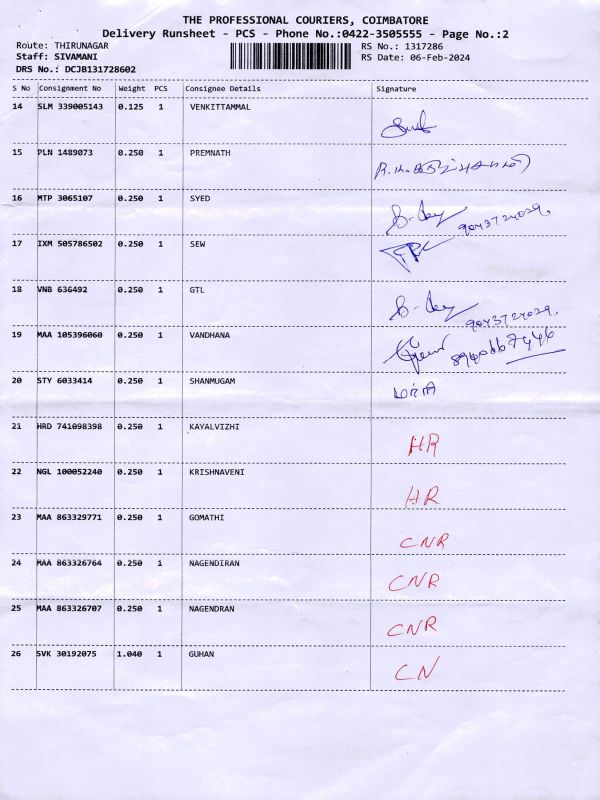 THE PROFESSIONAL COURIERS, COIMBATORE
Delivery Runsheet - PCS - Phone No.:0422-3505555 - Page No.:2
Route: THIRUNAGAR RS No.: 1317286
Staff: SIVAMANI RS Date: 06-Feb-2024
DRS No.: DCJB131728602
S No Consignment No Weight PCS Consignee Details Signature
14 SLM 339005143 0.125 1 VENKITTAMMAL
15 PLN 1489073 0.250 1 PREMNATH
16 MTP 3065107 0.250 1 SYED
9043724029
17 IXM 505786502 0.250 1 SEW
18 VNB 636492 0.250 1 GTL
9043724029
19 MAA 105396060 0.250 1 VANDHANA
20 STY 6033414 0.250 1 SHANMUGAM
21 HRD 741098398 0.250 1 KAYALVIZHI HR
22 NGL 100052240 0.250 1 KRISHNAVENI HR
23 MAA 863329771 0.250 1 GOMATHI CNR
24 MAA 863326764 0.250 1 NAGENDIRAN CNR
25 MAA 863326707 0.250 1 NAGENDRAN CNR
26 SVK 30192075 1.040 1 GUHAN CN